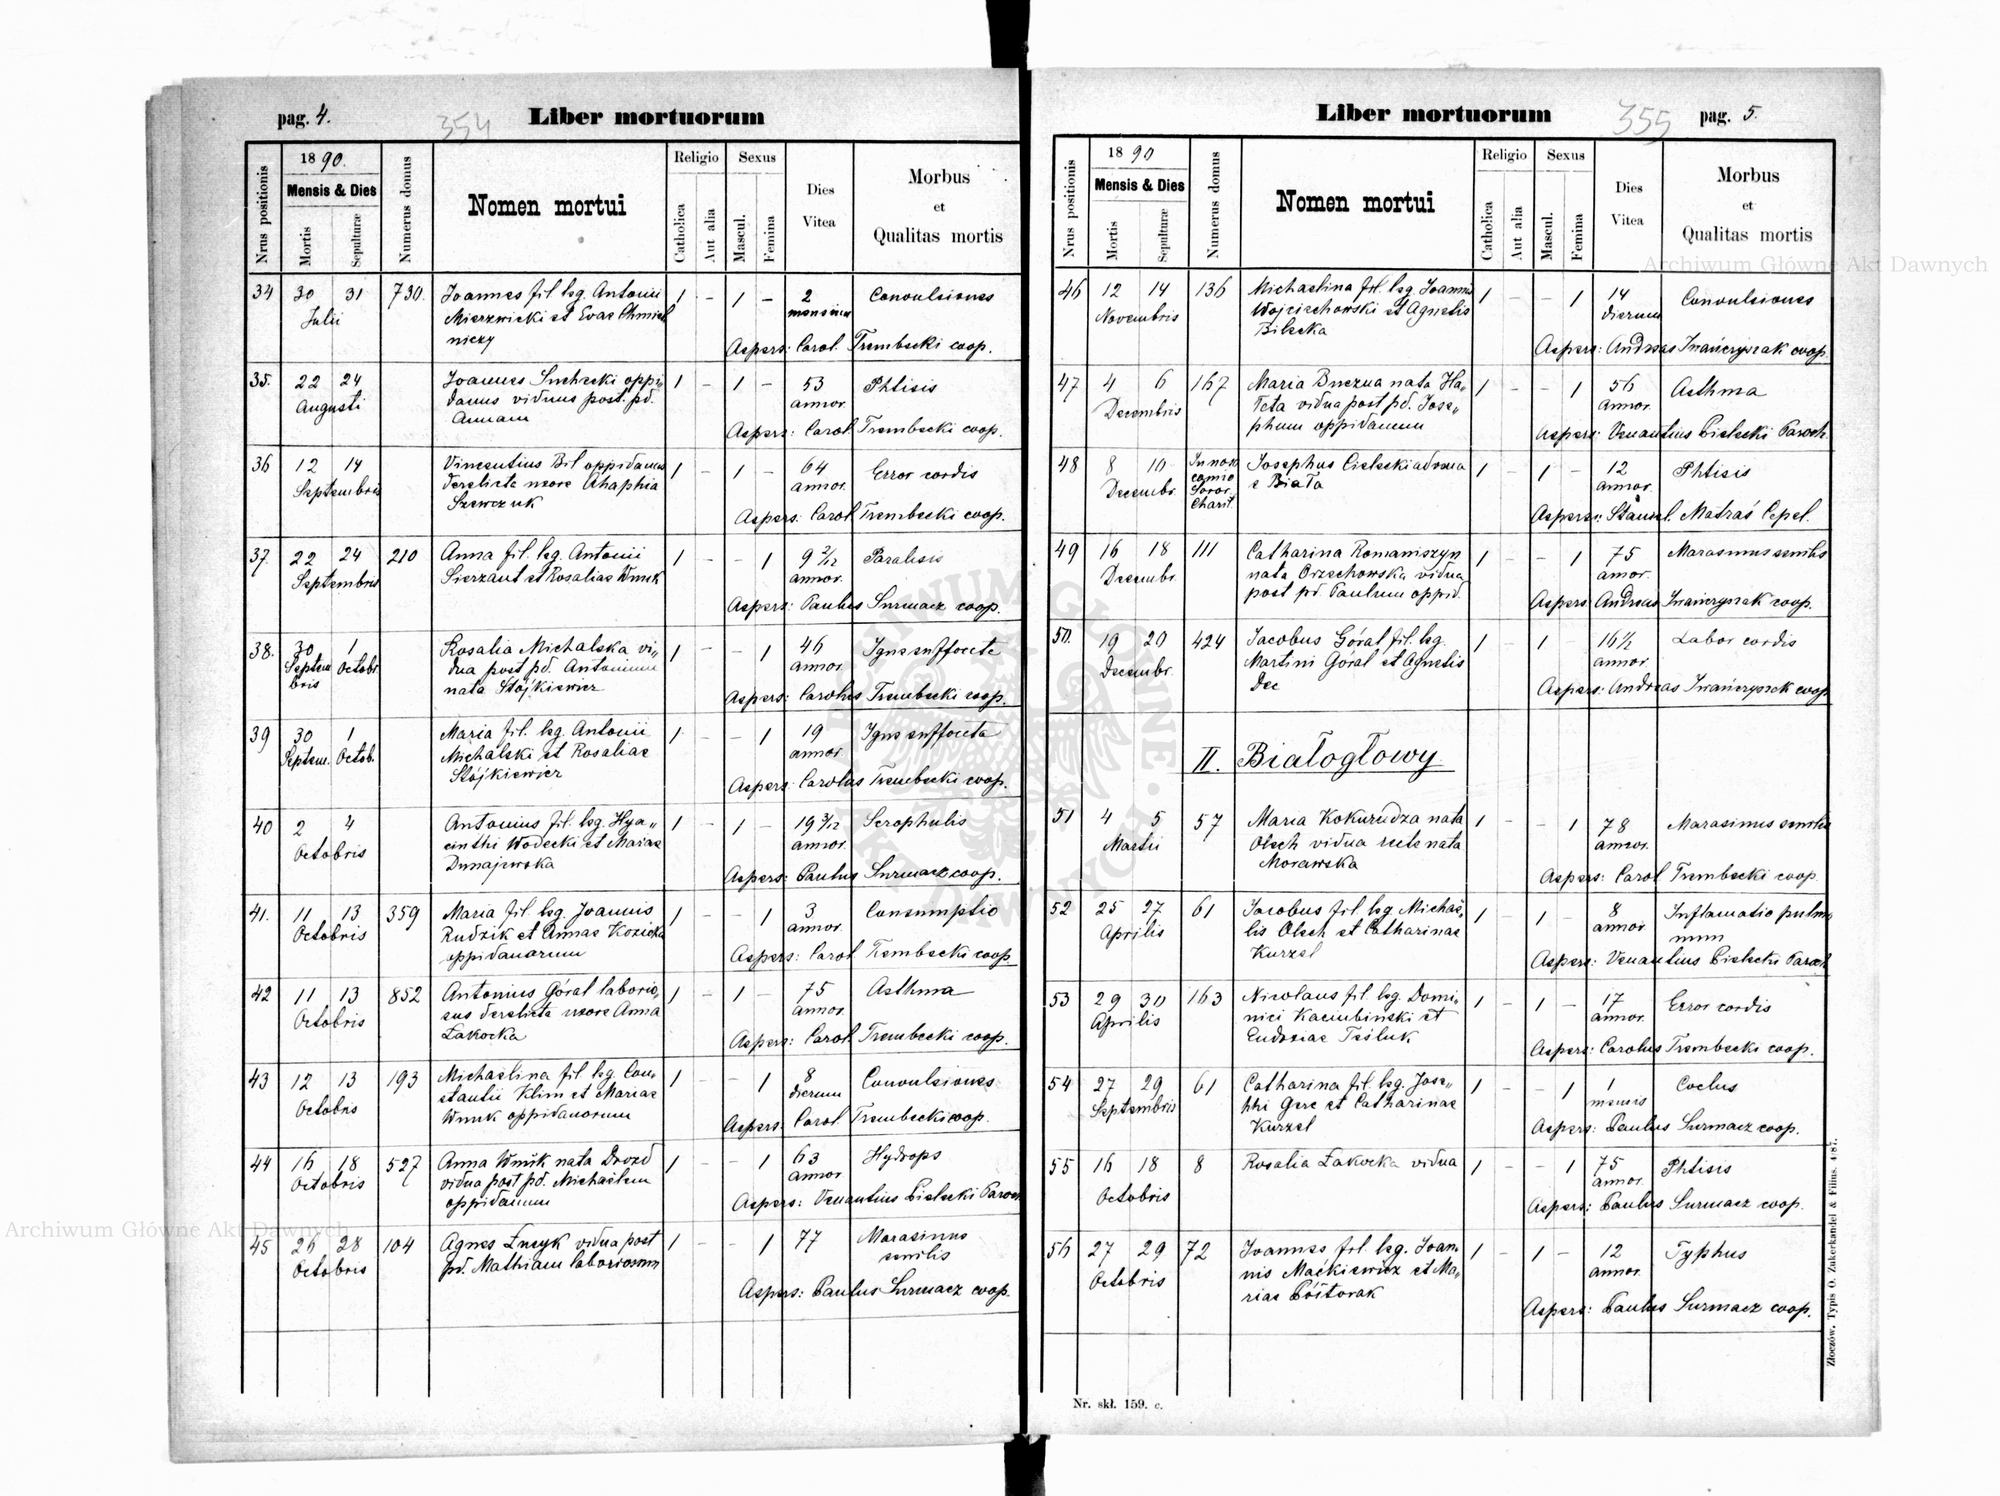 pag. 4.
354
Liber mortuorum
Nrus positionis
1890.
Mensis & Dies
Mortis
Sepulturæ
Numerus domus
Nomen mortui
Religio
Catholica
Aut alia
Sexus
Mascul.
Femina
Dies
Vitea
Morbus
et
Qualitas mortis
34 30 31 730. Joannes fil. lsg. Antonii 1 - 1 - 2 Convulsiones
Julii Mierzwicki et Evae Chmiel mensium
niczy Aspers: Carol. Trembecki coop.
35. 22 24 Joannes Suchecki oppi„ 1 - 1 - 53 Phtisis
Augusti danus viduus post. pd. annor.
Annam Aspers: Carol. Trembecki coop.
36 12 14 Vincentius Bil oppidanus 1 - 1 - 64 Error cordis
Septembris derelicta uxore Ahaphia annor.
Szewczuk Aspers: Carol. Trembecki coop.
37. 22 24 210 Anna fil. lsg. Antonii 1 - - 1 9 2/12 Paralisis
Septembris Sierzant et Rosaliae Wnuk annor.
Aspers: Paulus Surmacz coop.
38. 30 1 Rosalia Michalska vi„ 1 - - 1 46 Igne suffocata
Septem Octobr. dua post pd. Antonium annor.
bris nata Stójkiewicz Aspers: Carolus Trembecki coop.
39 30 1 Maria fil. lsg. Antonii 1 - - 1 19 Igne suffocata
Septem. Octob. Michalski et Rosaliae annor.
Stójkiewicz Aspers: Carolus Trembecki coop.
40 2 4 Antonius fil. lsg. Hya„ 1 - 1 - 19 3/12 Scrophulis
Octobris cinthi Wodecki et Mariae annor.
Dunajewska Aspers: Paulus Surmacz coop.
41. 11 13 359 Maria fil. lsg. Joannis 1 - - 1 3 Consumptio
Octobris Rudzik et Annae Kozicka annor.
oppidanorum Aspers: Carol. Trembecki coop.
42 11 13 852 Antonius Góral laborio„ 1 - 1 - 75 Asthma
Octobris sus derelicta uxore Anna annor.
Łakocka Aspers: Carol. Trembecki coop.
43 12 13 193 Michaelina fil. lsg. Con„ 1 - - 1 8 Convulsiones
Octobris stantii Klim et Mariae dierum
Wnuk oppidanorum Aspers: Carol. Trembecki coop.
44 16 18 527 Anna Wnuk nata Drozd 1 - - 1 63 Hydrops
Octobris vidua post pd. Michaelem annor.
oppidanum Aspers: Venantius Bielecki Paroch
45 26 28 104 Agnes Łucyk vidua post 1 - - 1 77 Marasmus
Octobris pd. Mathiam laboriosum senilis
Aspers: Paulus Surmacz coop.
Liber mortuorum
355
pag. 5.
Nrus positionis
1890
Mensis & Dies
Mortis
Sepulturæ
Numerus domus
Nomen mortui
Religio
Catholica
Aut alia
Sexus
Mascul.
Femina
Dies
Vitea
Morbus
et
Qualitas mortis
46 12 14 136 Michaelina fil. lsg. Joannis 1 - - 1 14 Convulsiones
Novembris Wojciechowski et Agnetis dierum
Bilecka Aspers: Andreas Iwańczyszak coop.
47 4 6 167 Maria Buczna nata Ha„ 1 - - 1 56 Asthma
Decembris łeta vidua post pd. Jose„ annor.
phum oppidanum Aspers: Venantius Bielecki Paroch.
48 8 10 Josephus Cielecki advena 1 - 1 - 12 Phtisis
Decembr. Soror. e Biała annor.
Charit. Aspers: Stanisl. Matraś Cepel.
49 16 18 111 Catharina Romaniszyn 1 - - 1 75 Marasmus senilis
Decembr. nata Orzechowska vidua annor.
post pd. Paulum oppid. Aspers: Andreas Iwańczyszak coop.
50. 19 20 424 Jacobus Góral fil. lsg. 1 - 1 - 16 1/2 Labor cordis
Decembr. Martini Góral et Agnetis annor.
Dec Aspers: Andreas Iwańczyszek coop.
II. Białogłowy.
51 4 5 57 Maria Kokurudza nata 1 - - 1 78 Marasmus senilis
Martii Olech vidua recte nata annor.
Morawska Aspers: Carol. Trembecki coop.
52 25 27 61 Jacobus fil. lsg. Michaë„ 1 - 1 - 8 Inflamatio pulmo
Aprilis lis Olech et Catharinae annor. num
Kurzel Aspers: Venantius Bielecki Paroch
53 29 30 163 Nicolaus fil. lsg. Domi„ 1 - 1 - 17 Error cordis
Aprilis nici Kaciubiński et annor.
Eudoxiae Teśluk Aspers: Carolus Trembecki coop.
54 27 29 61 Catharina fil. lsg. Jose„ 1 - - 1 1 Coclus
Septembris phi Gerc et Catharinae mensis
Kurzel Aspers: Paulus Surmacz coop.
55 16 18 8 Rosalia Łakocka vidua 1 - - 1 75 Phtisis
Octobris annor.
Aspers: Paulus Surmacz coop.
56 27 29 72 Joannes fil. lsg. Joan„ 1 - 1 - 12 Typhus
Octobris nis Maćkiewicz et Ma„ annor.
riae Półtorak Aspers: Paulus Surmacz coop.
Nr. skł. 159. c.
Złoczów, Typis O. Zukerkandel & Filius. 4/87.
Archiwum Główne Akt Dawnych
Archiwum Główne Akt Dawnych
ARCHIWUM GŁÓWNE AKT DAWNYCH